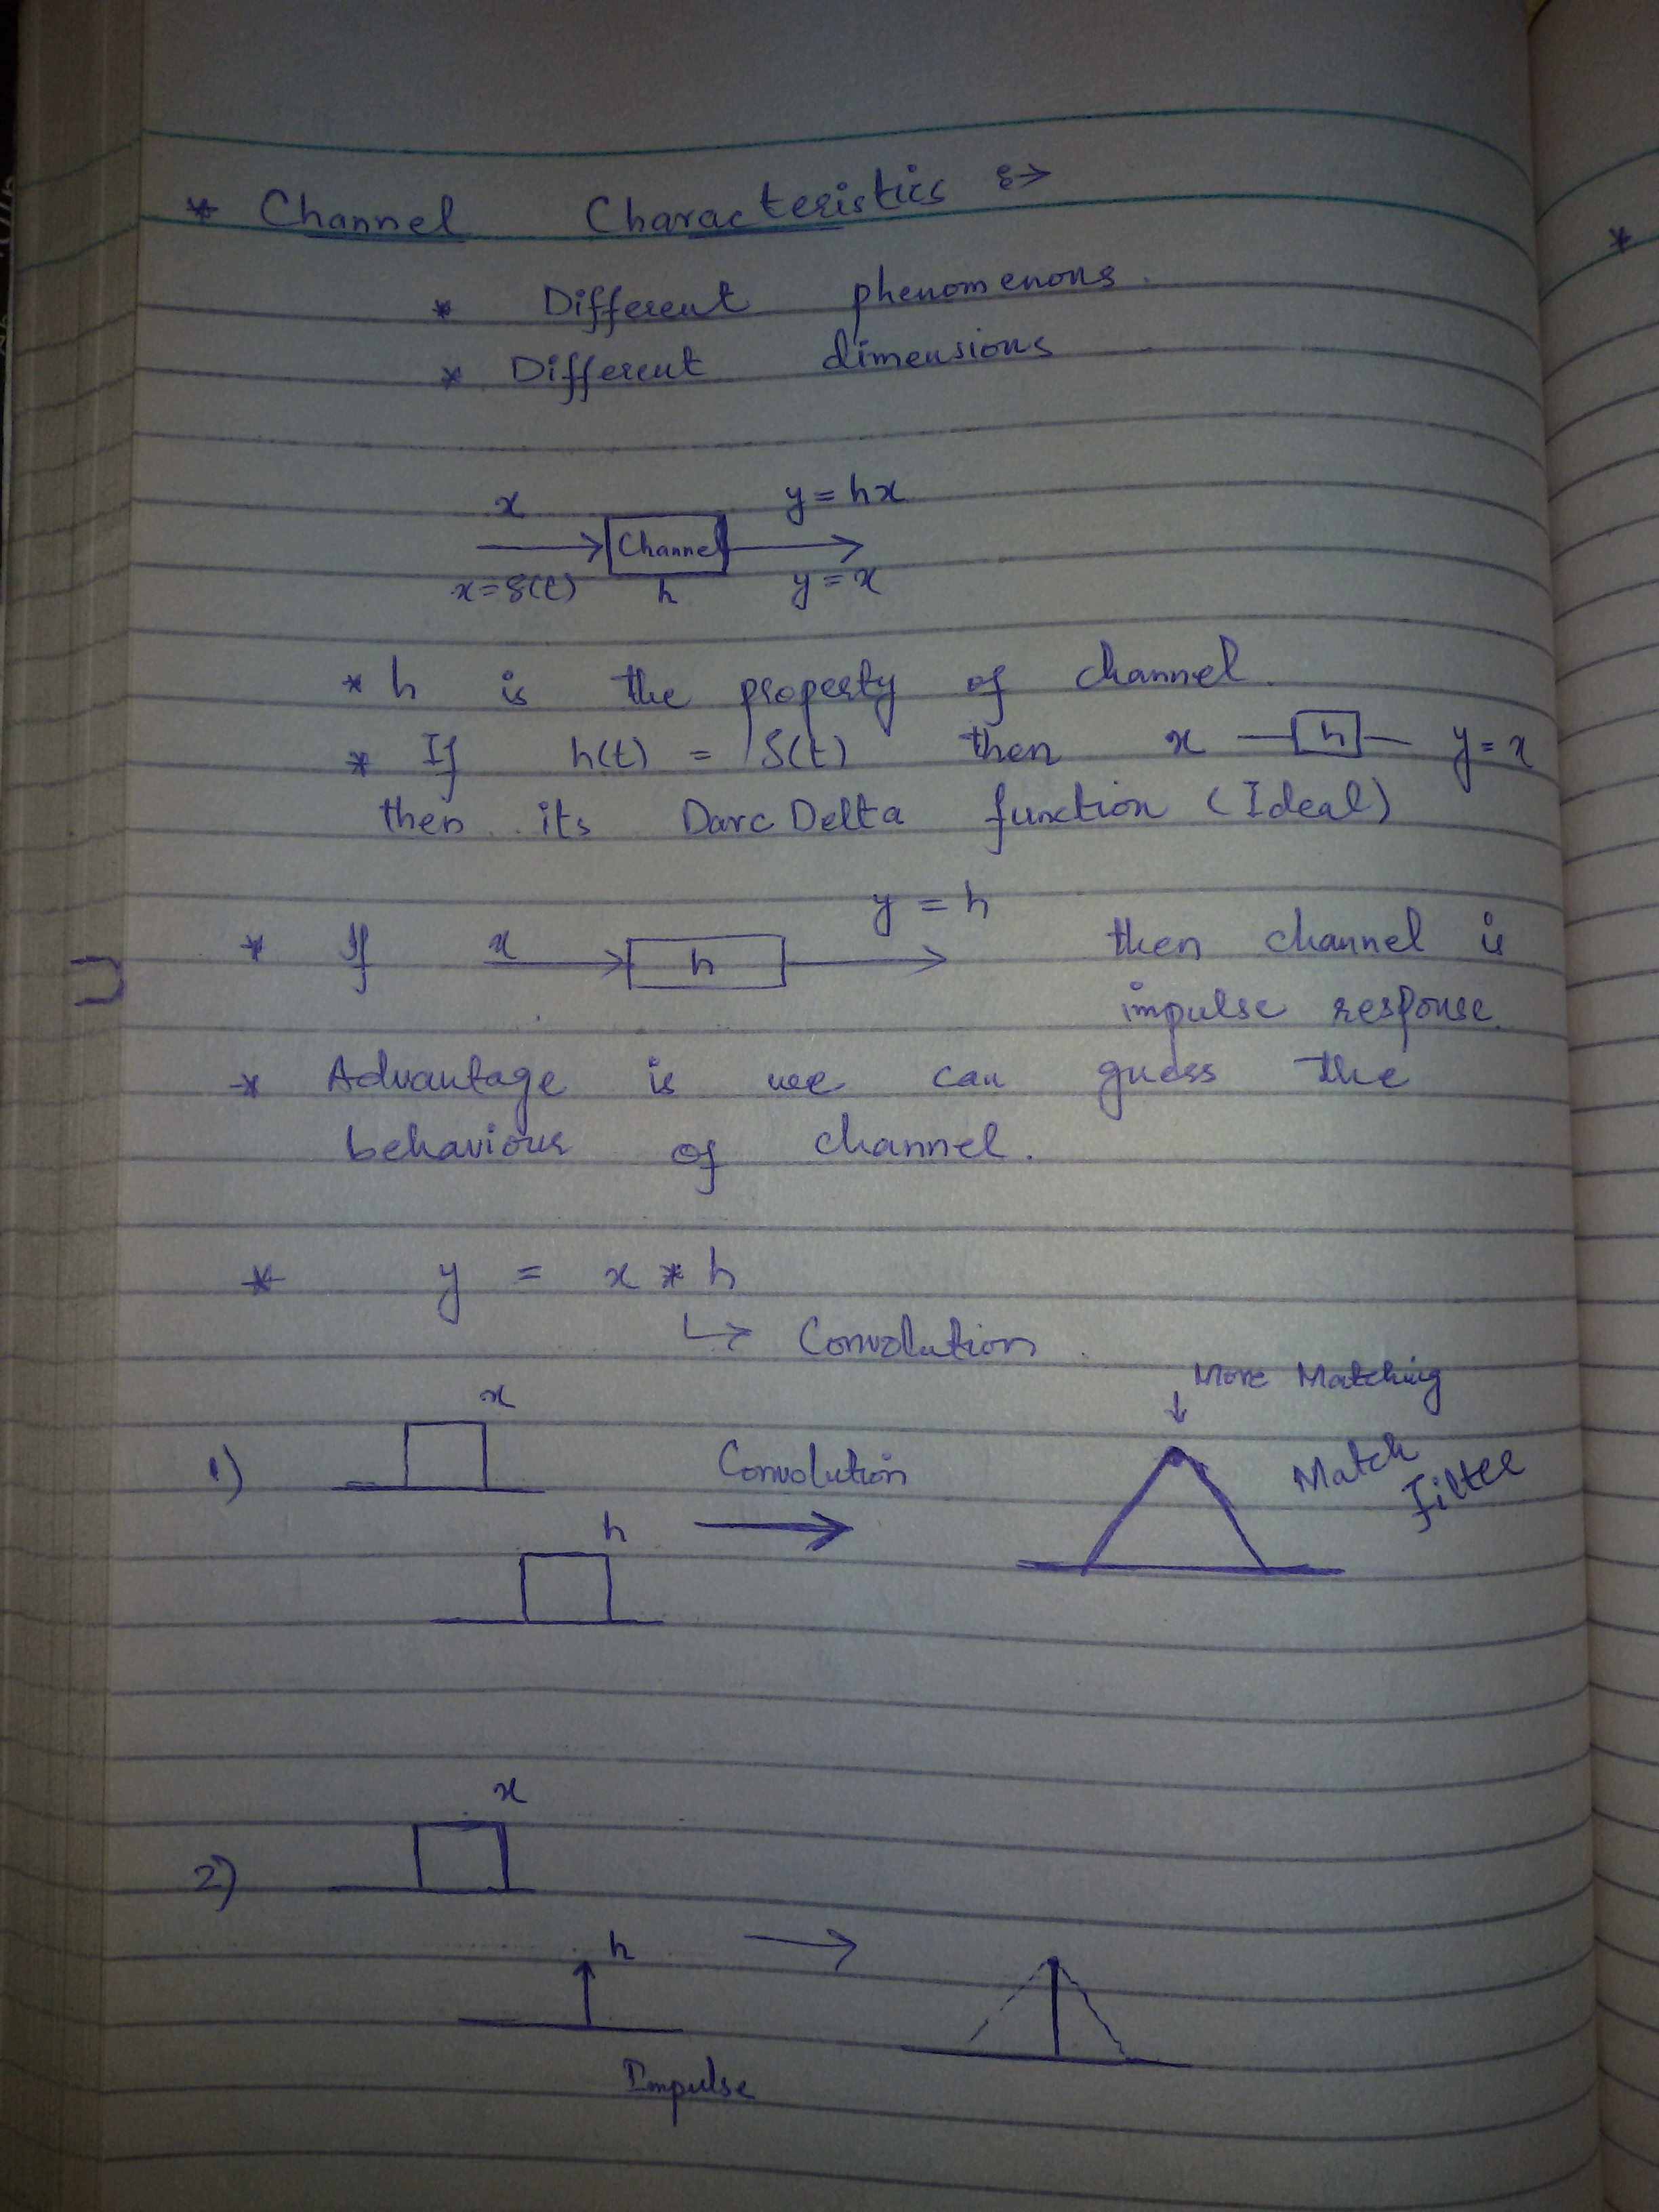 * Channel Characteristics :→
* Different phenomenons.
* Different dimensions
x y = hx
Channel
x = δ(t) h y = x
* h is the property of channel.
* If h(t) = δ(t) then x h y = x
then its Darc Delta function (Ideal)
* If x h y = h then channel is
impulse response.
* Advantage is we can guess the
behaviour of channel.
* y = x * h
↳ Convolution.
More Matching
↓
1) x Convolution Match
Filter
h
2) x
h
Impulse